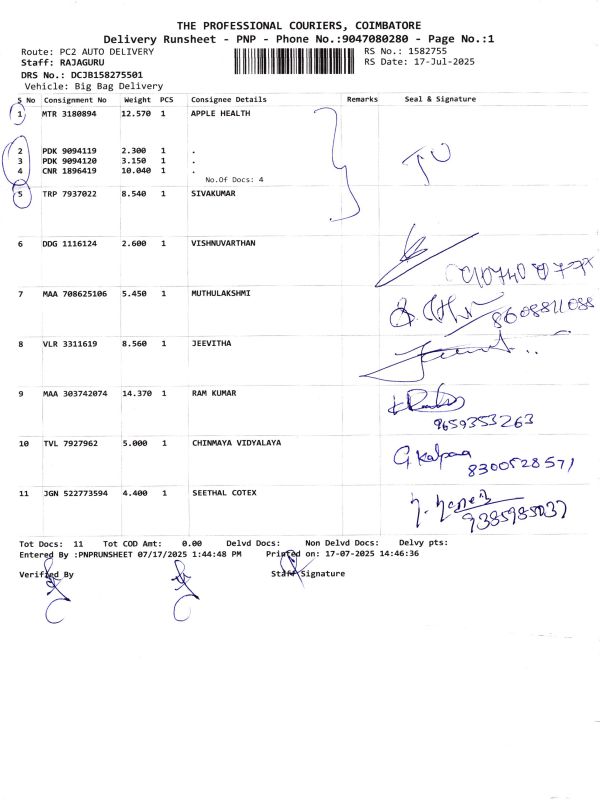 THE PROFESSIONAL COURIERS, COIMBATORE
Delivery Runsheet - PNP - Phone No.:9047080280 - Page No.:1
Route: PC2 AUTO DELIVERY
RS No.: 1582755
Staff: RAJAGURU
RS Date: 17-Jul-2025
DRS No.: DCJB158275501
Vehicle: Big Bag Delivery
S No Consignment No Weight PCS Consignee Details Remarks Seal & Signature
1 MTR 3180894 12.570 1 APPLE HEALTH
2 PDK 9094119 2.300 1 .
3 PDK 9094120 3.150 1 .
4 CNR 1896419 10.040 1 .
No.Of Docs: 4
5 TRP 7937022 8.540 1 SIVAKUMAR
6 DDG 1116124 2.600 1 VISHNUVARTHAN
7 MAA 708625106 5.450 1 MUTHULAKSHMI
8608811088
8 VLR 3311619 8.560 1 JEEVITHA
9 MAA 303742074 14.370 1 RAM KUMAR
9659353263
10 TVL 7927962 5.000 1 CHINMAYA VIDYALAYA
G Kalpana
8300528571
11 JGN 522773594 4.400 1 SEETHAL COTEX
9385985037
Tot Docs: 11 Tot COD Amt: 0.00 Delvd Docs: Non Delvd Docs: Delvy pts:
Entered By :PNPRUNSHEET 07/17/2025 1:44:48 PM Printed on: 17-07-2025 14:46:36
Verified By Staff Signature